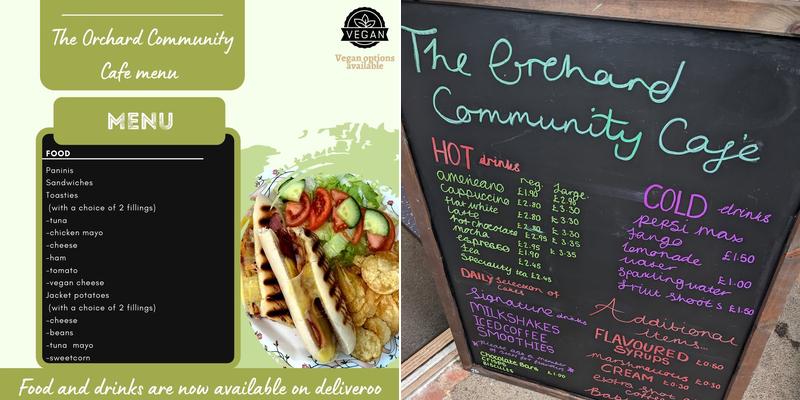 The Orchard Community
Cafe menu
VEGAN
Vegan options
available
MENU
FOOD
Paninis
Sandwiches
Toasties
(with a choice of 2 fillings)
-tuna
-chicken mayo
-cheese
-ham
-tomato
-vegan cheese
Jacket potatoes
(with a choice of 2 fillings)
-cheese
-beans
-tuna mayo
-sweetcorn
Food and drinks are now available on deliveroo
The Orchard
Community Cafe
HOT drinks
reg. large.
americano £1.90 £2.90
Cappuccino £2.80 £3.30
flat white £2.80
latte £3.30
hot chocolate £2.95 £3.35
mocha £2.95 £3.35
espresso £1.90
tea £2.45
Speciality tea £2.45
DAILY selection of
cakes
Signature drinks
MILKSHAKES
ICED COFFEE
SMOOTHIES
Chocolate Bars £1.00
crisps
Biscuits
COLD drinks
pepsi max
tango £1.50
lemonade
water £1.00
sparkling water
fruit shoots £1.50
Additional
items...
FLAVOURED
SYRUPS £0.60
marshmallows £0.30
CREAM £0.30
extra shot of
coffee